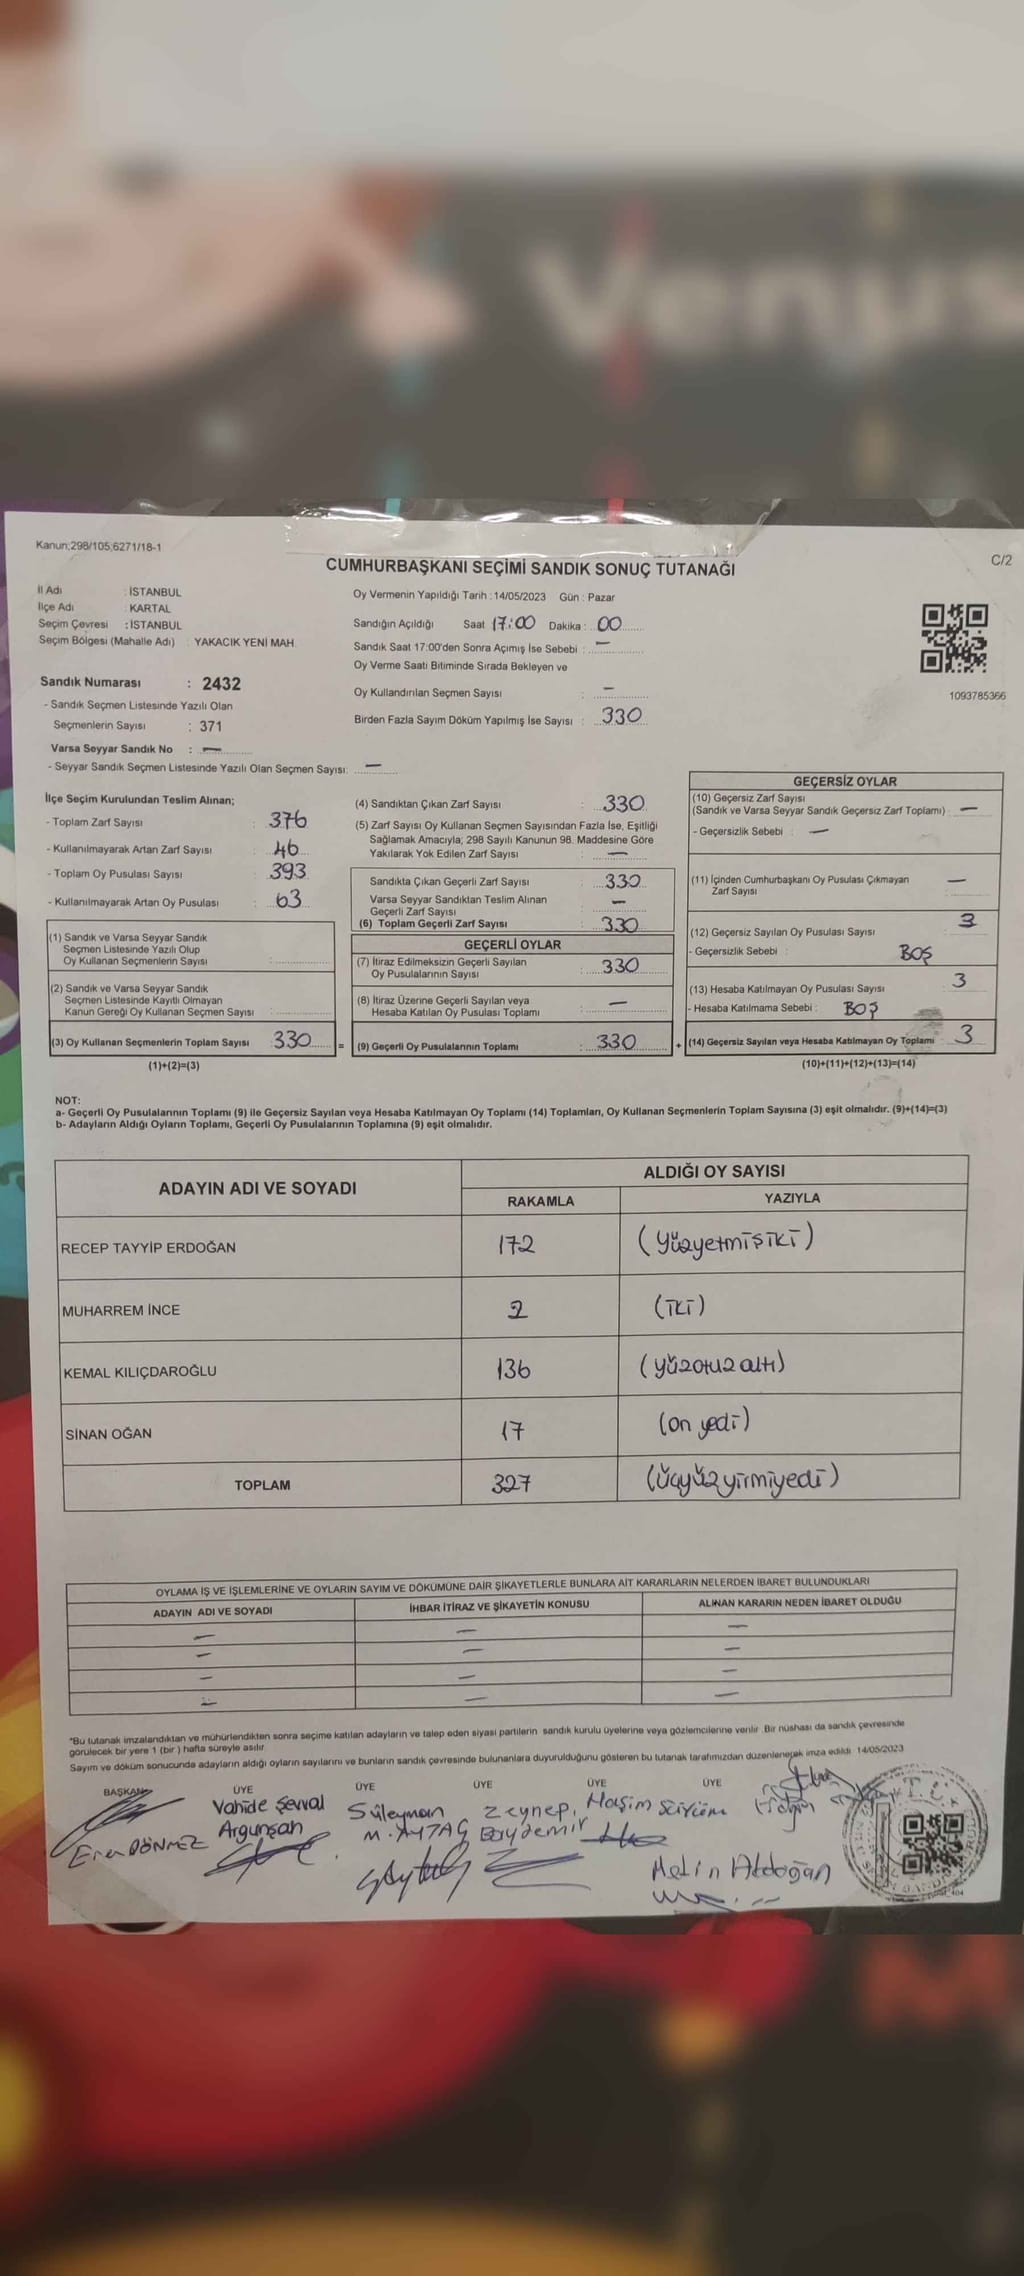 Venus
Kanun;298/105,6271/18-1
C/2
CUMHURBAŞKANI SEÇİMİ SANDIK SONUÇ TUTANAĞI
İl Adı : İSTANBUL
İlçe Adı : KARTAL
Seçim Çevresi : İSTANBUL
Seçim Bölgesi (Mahalle Adı) : YAKACIK YENİ MAH.
Oy Vermenin Yapıldığı Tarih : 14/05/2023 Gün : Pazar
Sandığın Açıldığı Saat 17:00 Dakika : 00
Sandık Saat 17:00'den Sonra Açımış İse Sebebi : —
Oy Verme Saati Bitiminde Sırada Bekleyen ve
Oy Kullandırılan Seçmen Sayısı : —
Birden Fazla Sayım Döküm Yapılmış İse Sayısı : 330
1093785366
Sandık Numarası : 2432
- Sandık Seçmen Listesinde Yazılı Olan
Seçmenlerin Sayısı : 371
Varsa Seyyar Sandık No : —
- Seyyar Sandık Seçmen Listesinde Yazılı Olan Seçmen Sayısı: —
İlçe Seçim Kurulundan Teslim Alınan;
- Toplam Zarf Sayısı : 376
- Kullanılmayarak Artan Zarf Sayısı : 46
- Toplam Oy Pusulası Sayısı : 393
- Kullanılmayarak Artan Oy Pusulası : 63
(1) Sandık ve Varsa Seyyar Sandık
Seçmen Listesinde Yazılı Olup
Oy Kullanan Seçmenlerin Sayısı :
(2) Sandık ve Varsa Seyyar Sandık
Seçmen Listesinde Kayıtlı Olmayan
Kanun Gereği Oy Kullanan Seçmen Sayısı :
(3) Oy Kullanan Seçmenlerin Toplam Sayısı 330 =
(1)+(2)=(3)
(4) Sandıktan Çıkan Zarf Sayısı : 330
(5) Zarf Sayısı Oy Kullanan Seçmen Sayısından Fazla İse, Eşitliği
Sağlamak Amacıyla; 298 Sayılı Kanunun 98. Maddesine Göre
Yakılarak Yok Edilen Zarf Sayısı : —
Sandıkta Çıkan Geçerli Zarf Sayısı : 330
Varsa Seyyar Sandıktan Teslim Alınan
Geçerli Zarf Sayısı : —
(6) Toplam Geçerli Zarf Sayısı : 330
GEÇERLİ OYLAR
(7) İtiraz Edilmeksizin Geçerli Sayılan
Oy Pusulalarının Sayısı : 330
(8) İtiraz Üzerine Geçerli Sayılan veya
Hesaba Katılan Oy Pusulası Toplamı : —
(9) Geçerli Oy Pusulalarının Toplamı : 330 +
GEÇERSİZ OYLAR
(10) Geçersiz Zarf Sayısı
(Sandık ve Varsa Seyyar Sandık Geçersiz Zarf Toplamı) : —
- Geçersizlik Sebebi : —
(11) İçinden Cumhurbaşkanı Oy Pusulası Çıkmayan
Zarf Sayısı : —
(12) Geçersiz Sayılan Oy Pusulası Sayısı : 3
- Geçersizlik Sebebi : BOŞ
(13) Hesaba Katılmayan Oy Pusulası Sayısı : 3
- Hesaba Katılmama Sebebi : BOŞ
(14) Geçersiz Sayılan veya Hesaba Katılmayan Oy Toplamı : 3
(10)+(11)+(12)+(13)=(14)
NOT:
a- Geçerli Oy Pusulalarının Toplamı (9) ile Geçersiz Sayılan veya Hesaba Katılmayan Oy Toplamı (14) Toplamları, Oy Kullanan Seçmenlerin Toplam Sayısına (3) eşit olmalıdır. (9)+(14)=(3)
b- Adayların Aldığı Oyların Toplamı, Geçerli Oy Pusulalarının Toplamına (9) eşit olmalıdır.
ADAYIN ADI VE SOYADI
ALDIĞI OY SAYISI
RAKAMLA YAZIYLA
RECEP TAYYİP ERDOĞAN 172 (yüzyetmişiki)
MUHARREM İNCE 2 (iki)
KEMAL KILIÇDAROĞLU 136 (yüzotuzaltı)
SİNAN OĞAN 17 (on yedi)
TOPLAM 327 (Üçyüzyirmiyedi)
OYLAMA İŞ VE İŞLEMLERİNE VE OYLARIN SAYIM VE DÖKÜMÜNE DAİR ŞİKAYETLERLE BUNLARA AİT KARARLARIN NELERDEN İBARET BULUNDUKLARI
ADAYIN ADI VE SOYADI İHBAR İTİRAZ VE ŞİKAYETİN KONUSU ALINAN KARARIN NEDEN İBARET OLDUĞU
— — —
— — —
— — —
— — —
*Bu tutanak imzalandıktan ve mühürlendikten sonra seçime katılan adayların ve talep eden siyasi partilerin sandık kurulu üyelerine veya gözlemcilerine verilir. Bir nüshası da sandık çevresinde
görülecek bir yere 1 (bir ) hafta süreyle asılır.
Sayım ve döküm sonucunda adayların aldığı oyların sayılarını ve bunların sandık çevresinde bulunanlara duyurulduğunu gösteren bu tutanak tarafımızdan düzenlenerek imza edildi. 14/05/2023
BAŞKAN ÜYE ÜYE ÜYE ÜYE ÜYE
Eren DÖNMEZ
Vahide Şevval
Argunşah
Süleyman
M. AYTAÇ
Zeynep
Baydemir
Haşim
Metin Akdoğan
T.C.